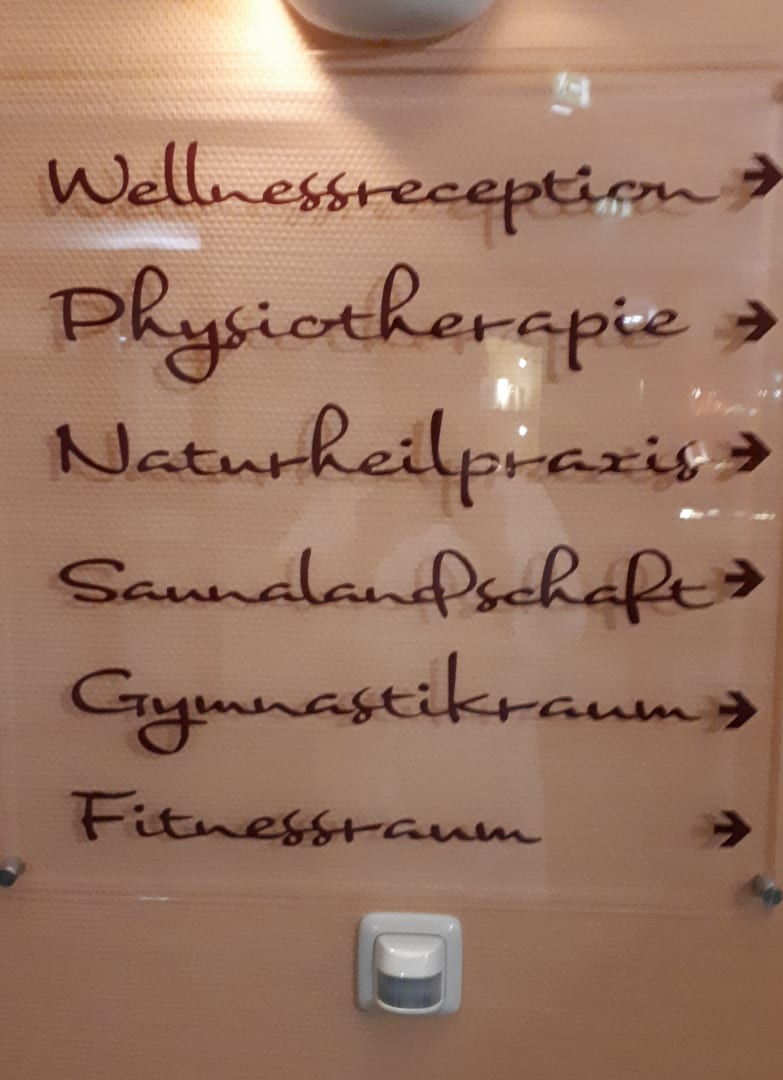 Wellnessreception →
Physiotherapie →
Naturheilpraxis →
Saunalandschaft →
Gymnastikraum →
Fitnessraum →